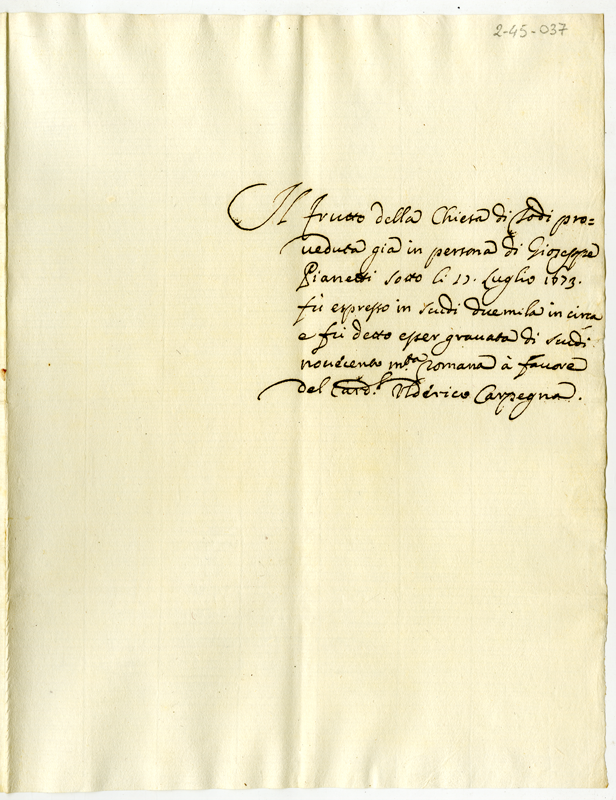 2-45-037
Il frutto della Chiesa di Todi pro=
veduta già in persona di Gioseppe
Pianetti sotto li 17. Luglio 1673.
fù espresso in scudi duemila in circa
e fù detto esser gravata di scudi
novecento m.ta romana à favore
del Card.l Uderico Carpegna.